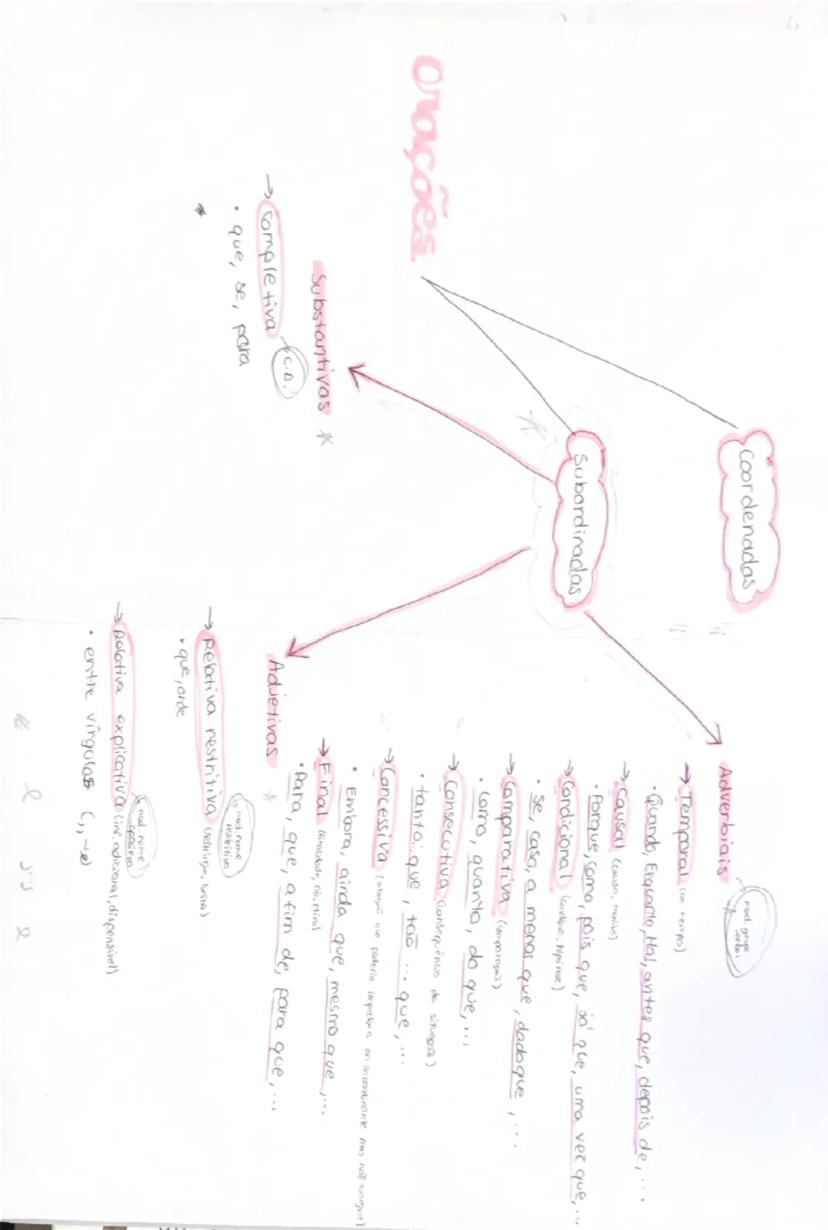 Orações
Coordenadas
Subordinadas
Substantivas *
→ Completiva → C.D.
• que, se, para
*
Adverbiais
mod. grupo
verbal
→ Temporal (tempo)
• Quando, Enquanto, Mal, antes que, depois de, ...
→ Causal (causa, motivo)
• Porque, como, pois que, já que, uma vez que, ...
→ Condicional (condição, hipótese)
• se, caso, a menos que, dado que, ...
→ Comparativa (comparação)
• como, quanto, do que, ...
→ Consecutiva (consequência da situação)
• tanto que, tão ... que, ...
→ Concessiva (situação que poderia impedir mas não consegue)
• Embora, ainda que, mesmo que, ...
→ Final (finalidade, objetivo)
• Para, que, a fim de, para que, ...
Adjetivas *
→ Relativa restritiva (restringe, limita)
↳ mod. nome
restritivo
• que, onde
→ Relativa explicativa (inf. adicional, dispensável)
mod. nome
• entre vírgulas (,,-e)